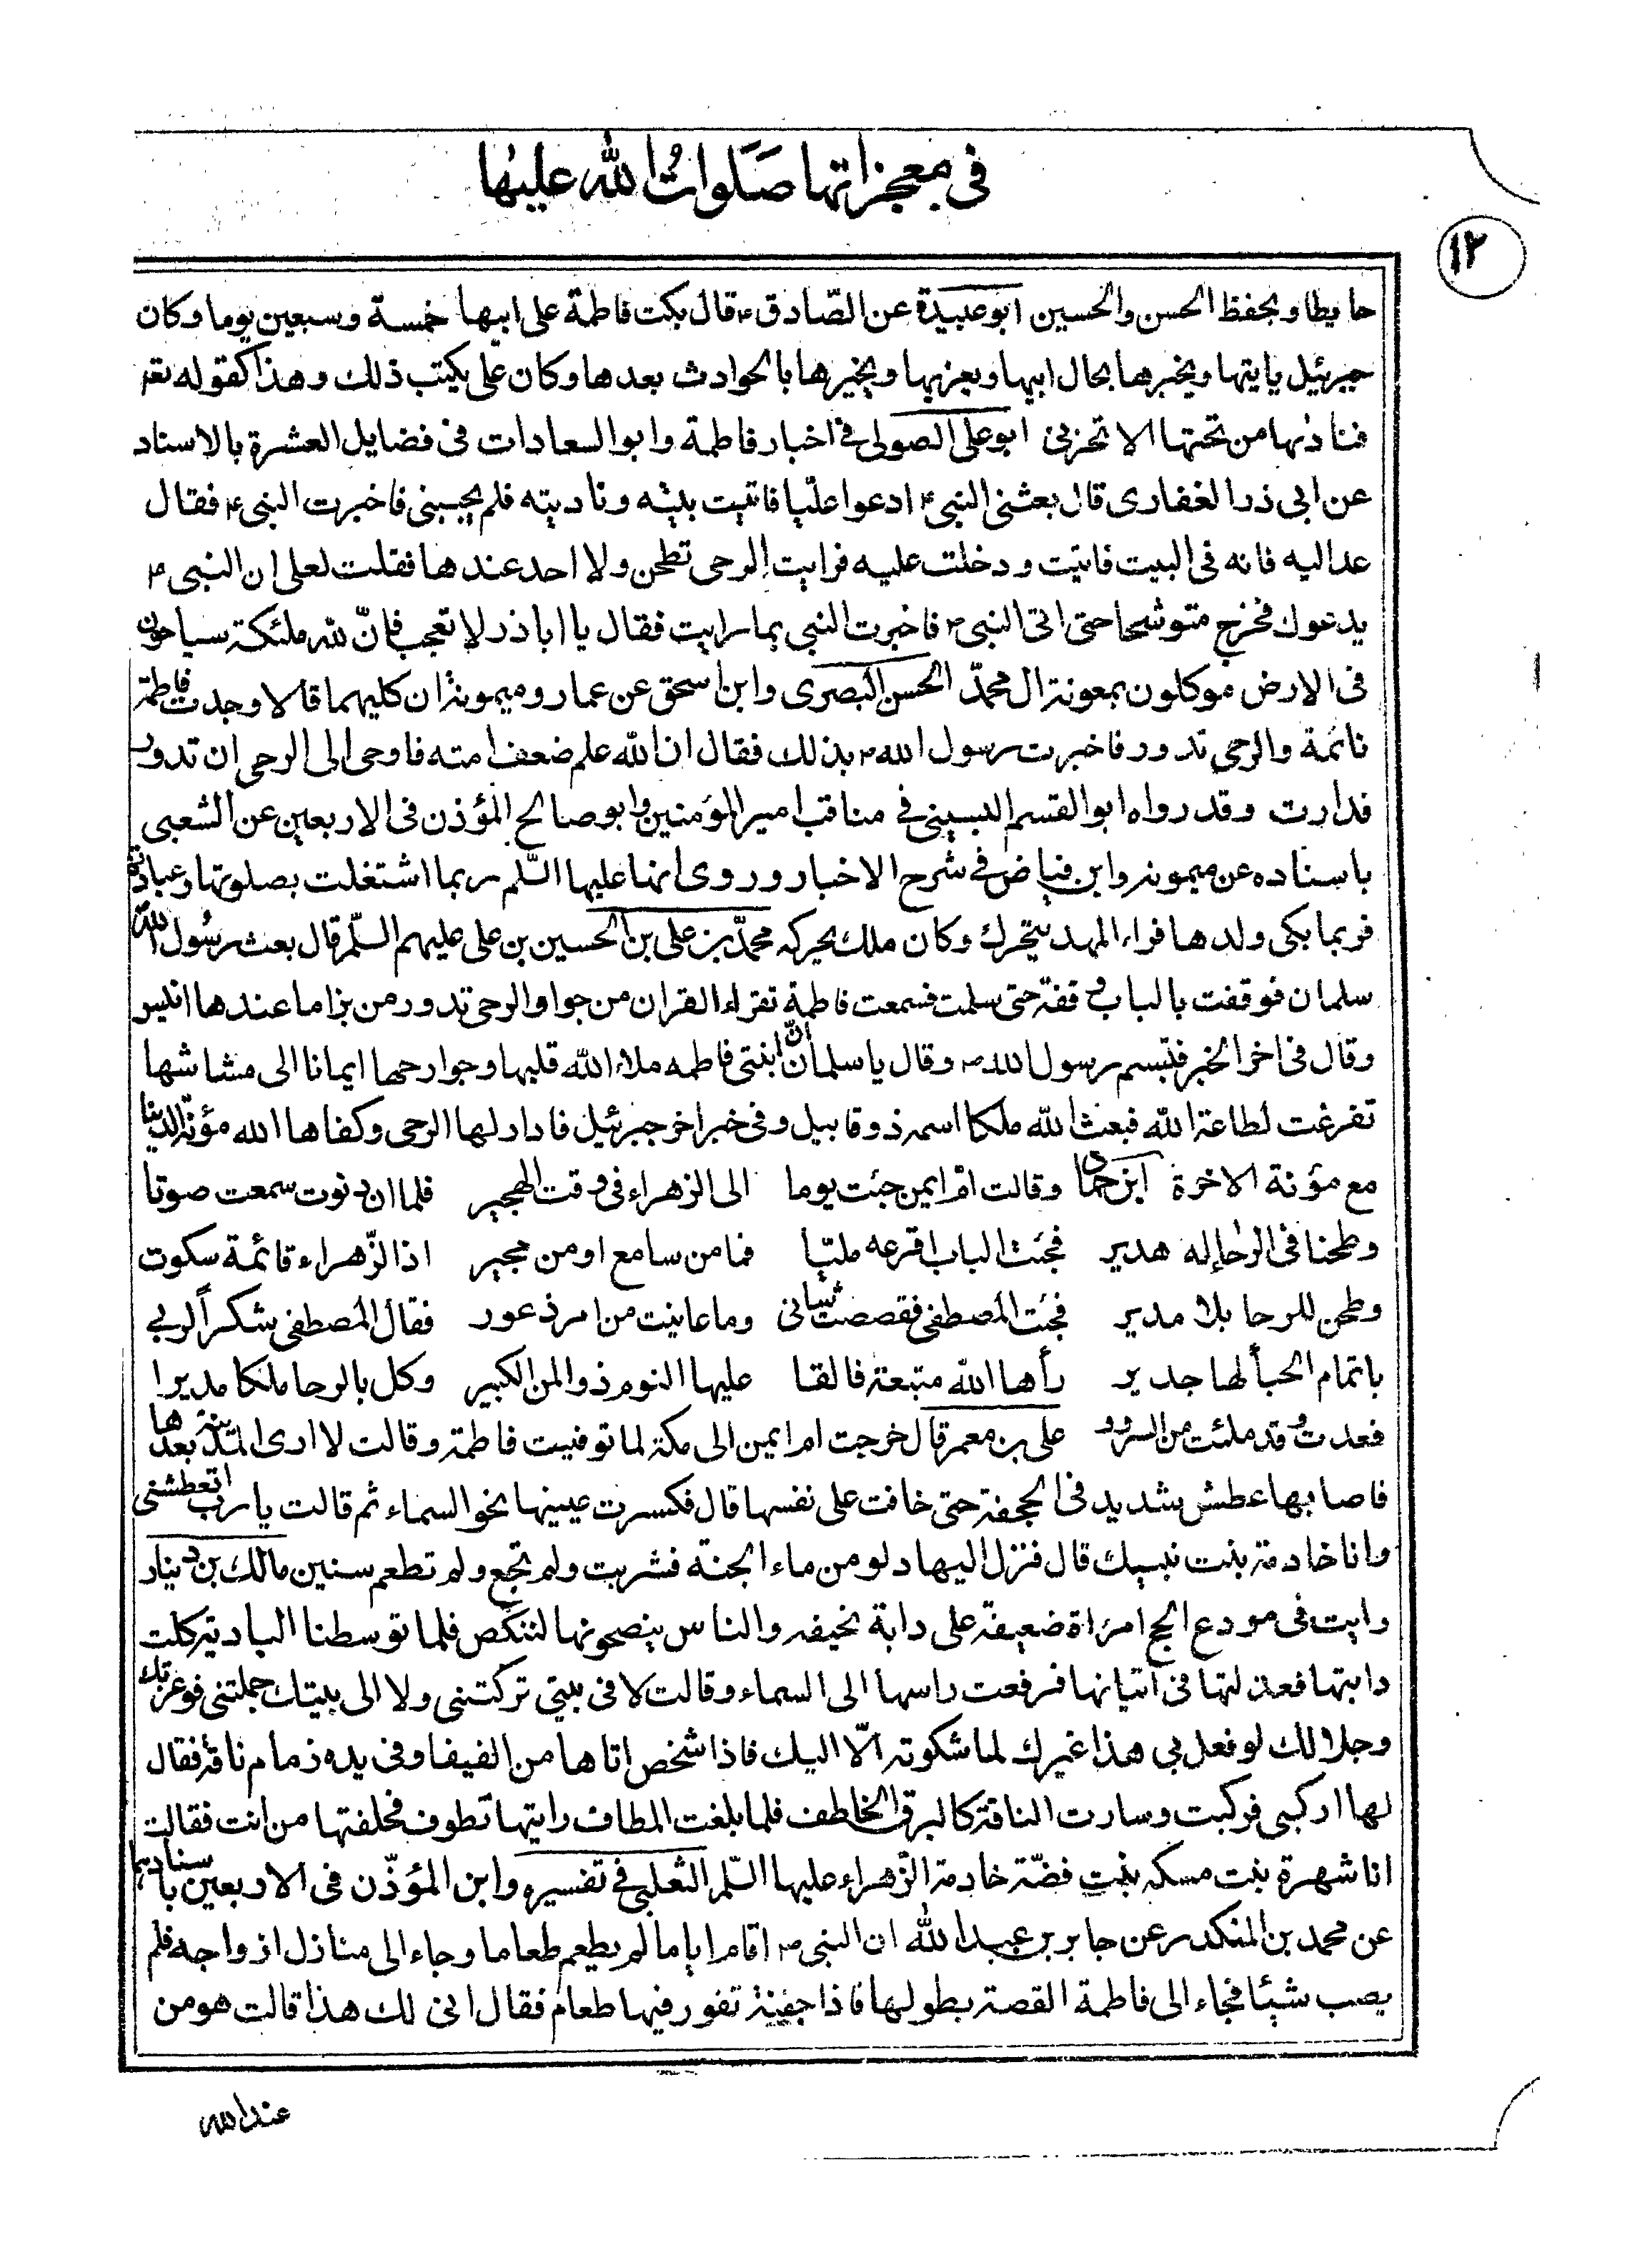 فی معجزاتها صَلَواتُ الله علیها
١٢
حایطا ویحفظ الحسن والحسین ابوعبیدة عن الصّادق ع قال بکت فاطمة علی ابیها خمسة وسبعین یوما وکان
جبرئیل یایتها ویخبرها بحال ابیها ویعزیها ویخبرها بالحوادث بعدها وکان علی یکتب ذلک وهذا کقوله تعم
فنادیها من تحتها الا تحزنی ابوعلی الصولی فی اخبار فاطمة وابو السعادات فی فضایل العشرة بالاسناد
عن ابی ذر الغفاری قال بعثنی النبی ص ادعوا علیّا فاتیت بیته ونادیته فلم یجبنی فاخبرت النبی ص فقال
عد الیه فانه فی البیت فاتیت ودخلت علیه فرایت الرحی تطحن ولا احد عندها فقلت لعلی ان النبی ص
یدعوک فخرج متوشحا حتی اتی النبی ص فاخبرت النبی بما رایت فقال یا اباذر لا تعجب فانّ لله ملئکة سیاحون
فی الارض موکلون بمعونة ال محمدّ الحسن البصری وابن اسحق عن عمار ومیمونة ان کلیهما قالا وجدت فاطمة
نائمة والرحی تدور فاخبرت رسول الله ص بذلک فقال ان الله علم ضعف امته فاوحی الی الرحی ان تدور
فدارت وقد رواه ابو القسم البستی فی مناقب امیر المؤمنین وابو صالح المؤذن فی الاربعین عن الشعبی
باسناده عن میمونة وابن فیاض فی شرح الاخبار وروی انها علیها السّلم ربما اشتغلت بصلوتها وعبادتها
فربما بکی ولدها فراء المهد یتحرک وکان ملک یحرکه محمدّ بن علی بن الحسین بن علی علیهم السّلم قال بعث رسُول الله
سلمان فوقفت بالباب وقفة حتی سلمت فسمعت فاطمة تقراء القران من جوا والرحی تدور من برا ما عندها انیس
وقال فی اخر الخبر فتبسم رسول الله ص وقال یا سلمان انّ ابنتی فاطمه ملاء الله قلبها وجوارحها ایمانا الی مشاشها
تفرغت لطاعة الله فبعث الله ملکا اسمه ذوقابیل وفی خبر اخر جبرئیل فادار لها الرحی وکفاها الله مؤنة الدنیا
مع مؤنة الاخرة ابن حماد وقالت امّ ایمن جئت یوما الی الزهراء فی وقت الهجیر فلما ان دنوت سمعت صوتا
وطحنا فی الرحا له هدیر فجئت الباب اقرعه ملیّا فما من سامع او من مجیر اذا الزّهراء قائمة سکوت
وطحن للرحا بلا مدیر فجئت المصطفی فقصصت شانی وما عاینت من امر ذعور فقال المصطفی شکراً لربی
باتمام الحبأ لها جدیر رأها الله متعبة فالقا علیها النوم ذو المن الکبیر وکل بالرحا ملکا مدیرا
فعدت وقد ملئت من السرور علی بن معمر قال خرجت ام ایمن الی مکة لما توفیت فاطمة وقالت لا اری المدینة بعدها
فاصابها عطش شدید فی الجحفة حتی خافت علی نفسها قال فکسرت عینیها نحو السماء ثم قالت یا رب اتعطشنی
وانا خادمة بنت نبیک قال فنزل الیها دلو من ماء الجنة فشربت ولم تجع ولم تطعم سنین مالک بن دینار
رایت فی مودع الحج امراة ضعیفة علی دابة نحیفه والناس ینصحونها لتنکص فلما توسطنا البادیة کلت
دابتها فعذلتها فی اتیانها فرفعت راسها الی السماء وقالت لا فی بیتی ترکتنی ولا الی بیتک حملتنی فوعزتک
وجلالک لو فعل بی هذا غیرک لما شکوته الّا الیک فاذا شخص اتاها من الفیفا وفی یده زمام ناقة فقال
لها ارکبی فرکبت وسارت الناقة کالبرق الخاطف فلما بلغت المطاف رایتها تطوف فحلفتها من انت فقالت
انا شهرة بنت مسکه بنت فضّة خادمة الزّهراء علیها السّلم الثعلبی فی تفسیره وابن المؤذّن فی الاربعین باسنادیهما
عن محمد بن المنکدر عن جابر بن عبدالله ان النبی ص اقام ایاما لم یطعم طعاما وجاء الی منازل ازواجه فلم
یصب شیئا فجاء الی فاطمة القصة بطولها فاذا جفنة تفور فیها طعام فقال انی لک هذا قالت هو من
عندالله